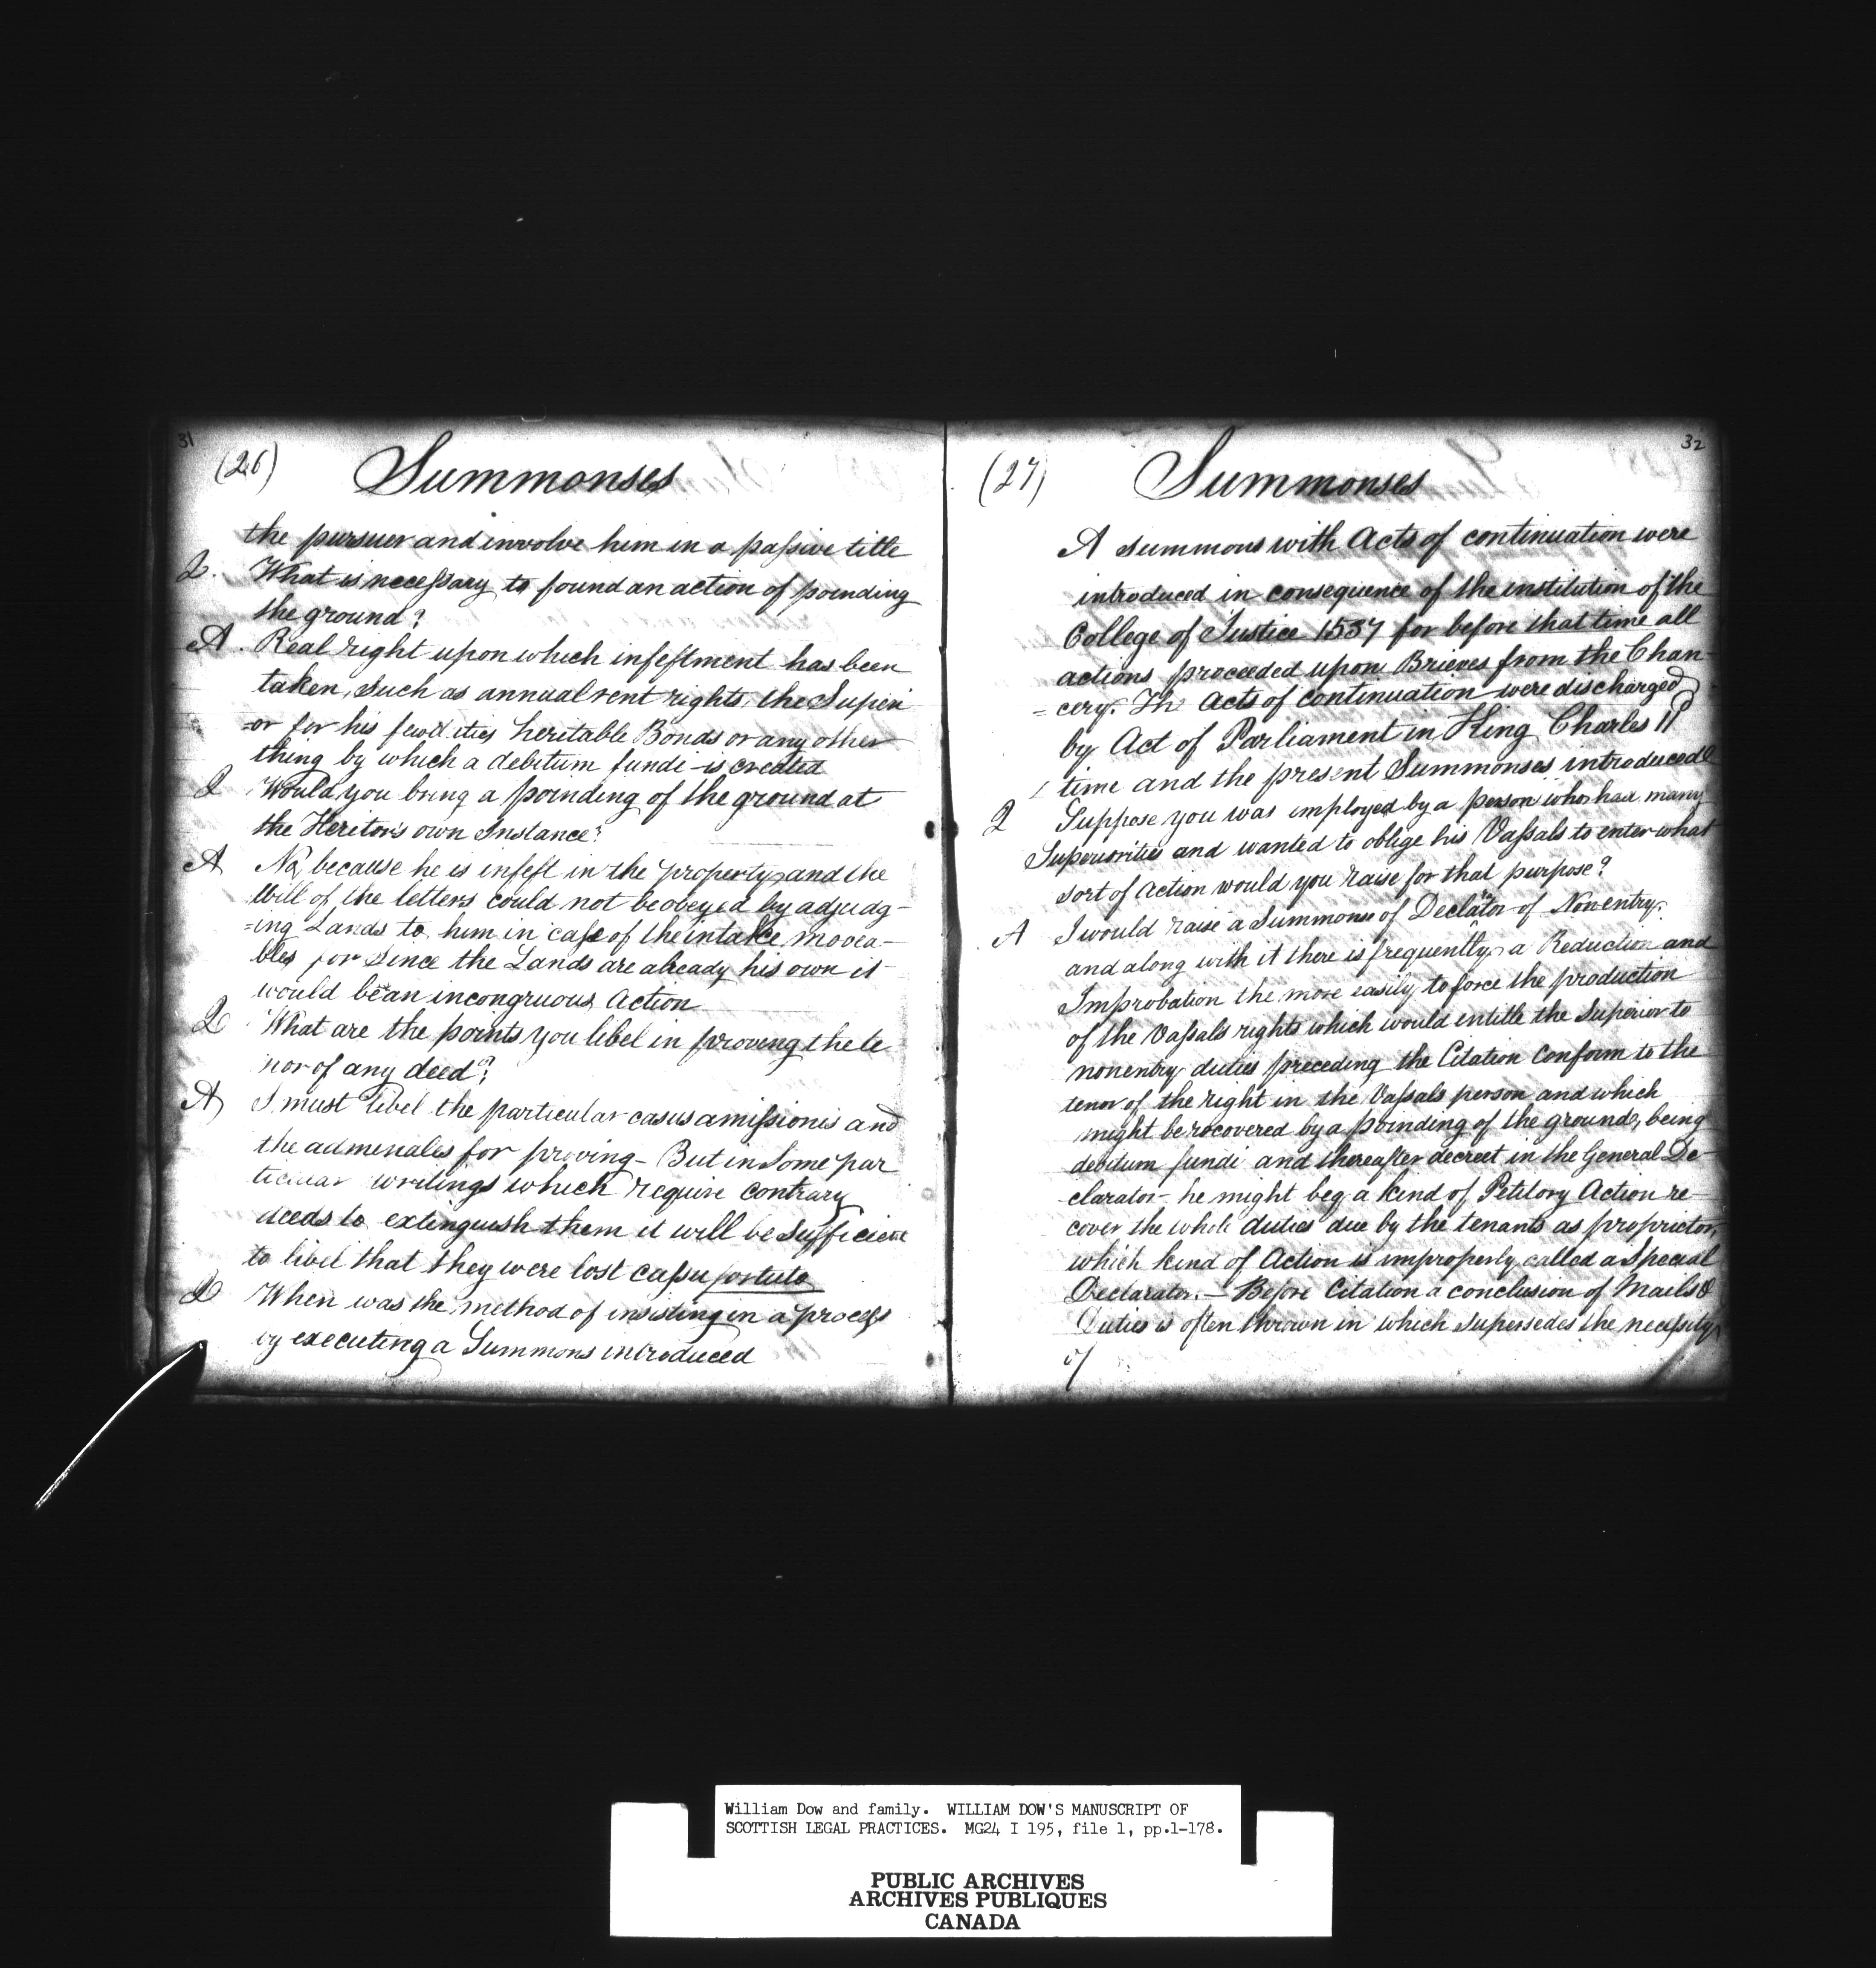 31
(26) Summonses
the pursuer and involve him in a passive title
Q. What is necessary to found an action of poinding
the ground?
A. Real right upon which infeftment has been
taken, such as annualrent rights, the Superi
=or for his feud uties heritable Bonds or any other
thing by which a debitum funde - is created
Q Would you bring a poinding of the ground at
the Heritor's own Instance?
A No, because he is infeft in the property, and the
Will of the letters could not be obeyed by adjudg-
=ing Lands to him in case of the intake movea-
bles for Since the Lands are already his own it
would be an incongruous Action
Q What are the points you libel in proving the te
nor of any deed?
A I must libel the particular casus amissionis and
the admenales for proving - But in Some par
ticular writings which require contrary
deeds to extinguish them it will be Sufficient
to libel that they were lost cassu fortuto
Q When was the method of insisting in a process
by executing a Summons introduced
32
(27) Summonses
A summons with Acts of continuation were
introduced in consequence of the institution of the
College of Justice 1537 for before that time all
actions proceeded upon Brieves from the Chan-
=cery. The Acts of continuation were discharged
by Act of Parliament in King Charles II
time and the present Summonses introduced
Q Suppose you was imployed by a person who had many
Superiorities and wanted to oblige his Vassals to enter what
sort of Action would you raise for that purpose?
A I would raise a Summons of Declator of Nonentry,
and along with it there is frequently a Reduction and
Improbation the more easily to force the production
of the Vassals rights which would intitle the Superior to
nonentry duties preceding the Citation Conform to the
tenor of the right in the Vassals person and which
might be recovered by a poinding of the ground, being
debitum fundi and thereafter decreet in the General De-
clarator - he might beg a kind of Petitory Action re-
cover the whole duties due by the tenants as proprietor,
which kind of Action is improperly called a Special
Declarator. - Before Citation a conclusion of Mails &
Duties is often thrown in which Supersedes the necessity
of
William Dow and family. WILLIAM DOW'S MANUSCRIPT OF
SCOTTISH LEGAL PRACTICES. MG24 I 195, file 1, pp.1-178.
PUBLIC ARCHIVES
ARCHIVES PUBLIQUES
CANADA